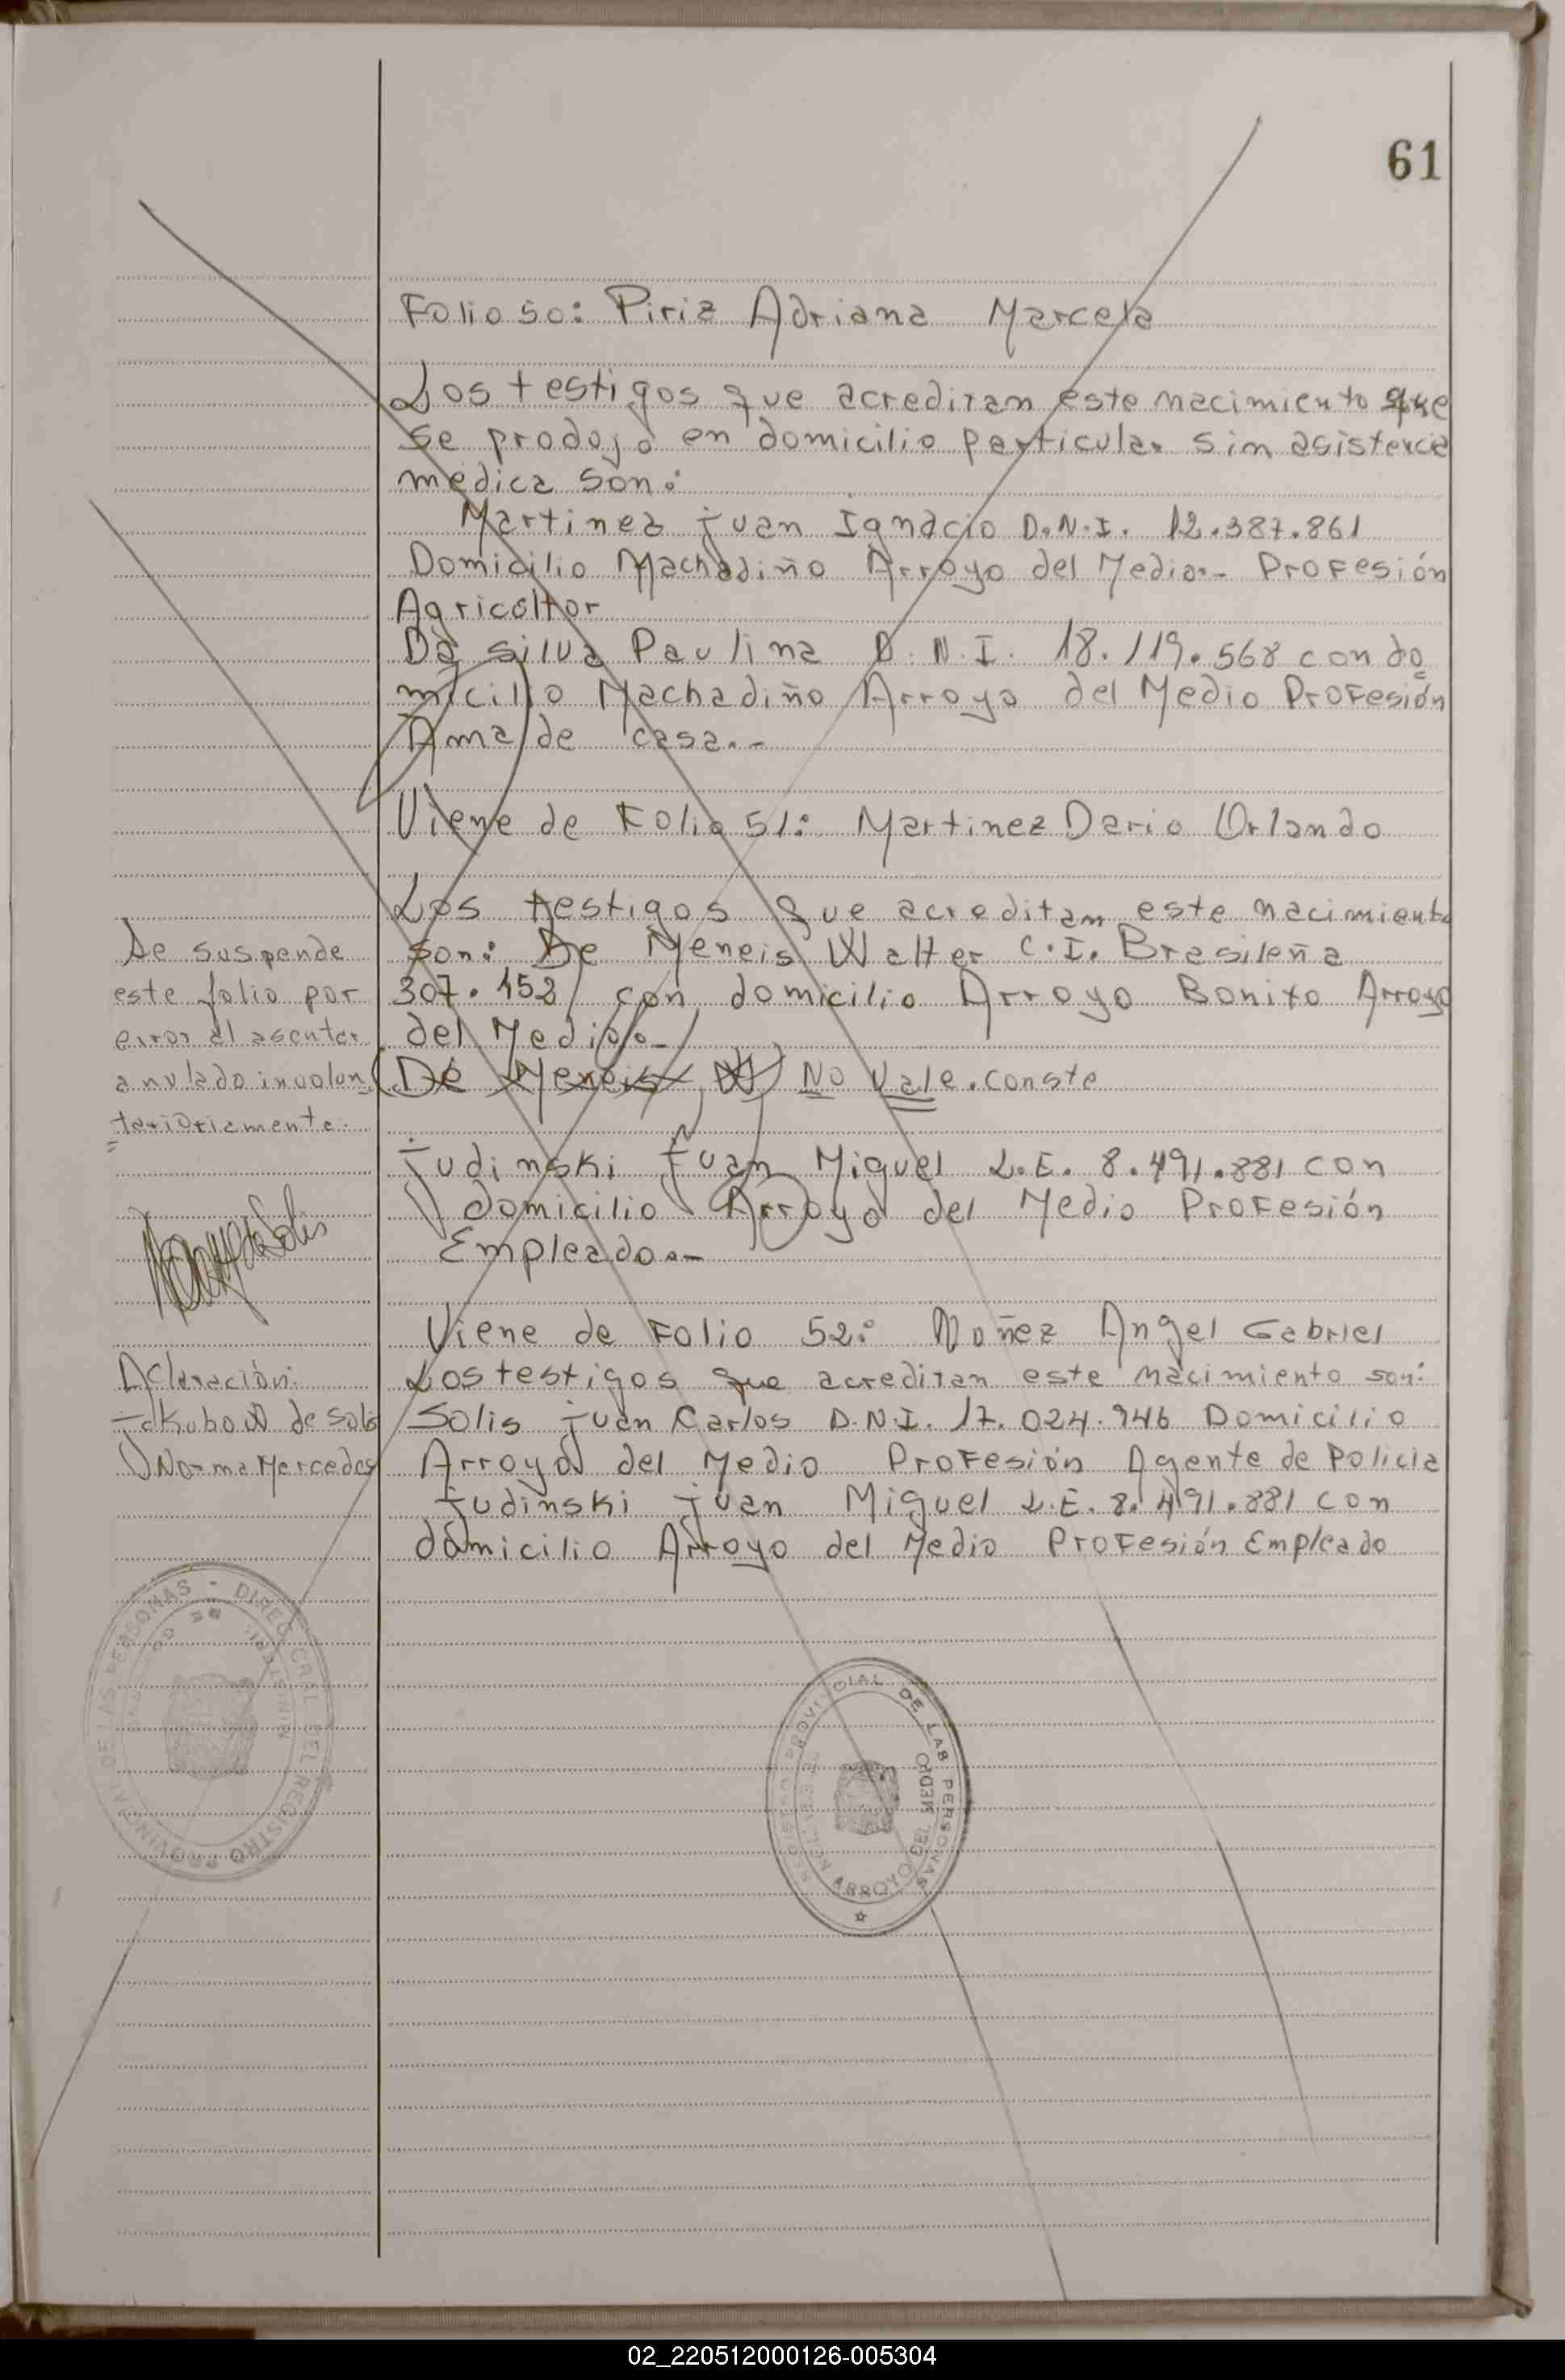 61
Folio 50: Piriz Adriana Marcela
Los testigos que acreditan este nacimiento que
se produjo en domicilio particular sin asistencia
medica son:
Martinez Juan Ignacio D.N.I. 12.387.861
Domicilio Machadiño Arroyo del Medio.- Profesión
Agricultor
Da silva Paulina D.N.I. 18.119.568 con do
micilio Machadiño Arroyo del Medio Profesión
Ama de casa.-
Viene de Folio 51: Martinez Dario Orlando
Los testigos que acreditan este nacimiento
son: De Meneis Walter C.I. Brasileña
307.152 con domicilio Arroyo Bonito Arroyo
del Medio.-
(De Meneis W) No Vale. conste
Judinski Juan Miguel L.E. 8.491.881 con
domicilio Arroyo del Medio Profesión
Empleado.-
Viene de Folio 52: Nuñez Angel Gabriel
Los testigos que acreditan este nacimiento son:
Solis Juan Carlos D.N.I. 17.024.946 Domicilio
Arroyo del Medio Profesión Agente de Policia
Judinski Juan Miguel L.E. 8.491.881 con
domicilio Arroyo del Medio Profesión Empleado
Se suspende
este folio por
error al asentar
anulado involun
tarioriamente.
Aclaración:
Jakubow de Solis
Norma Mercedes
DIREC. GRAL. DEL REGISTRO PROVINCIAL DE LAS PERSONAS
REGISTRO PROVINCIAL DE LAS PERSONAS
ARROYO DEL MEDIO
02_220512000126-005304